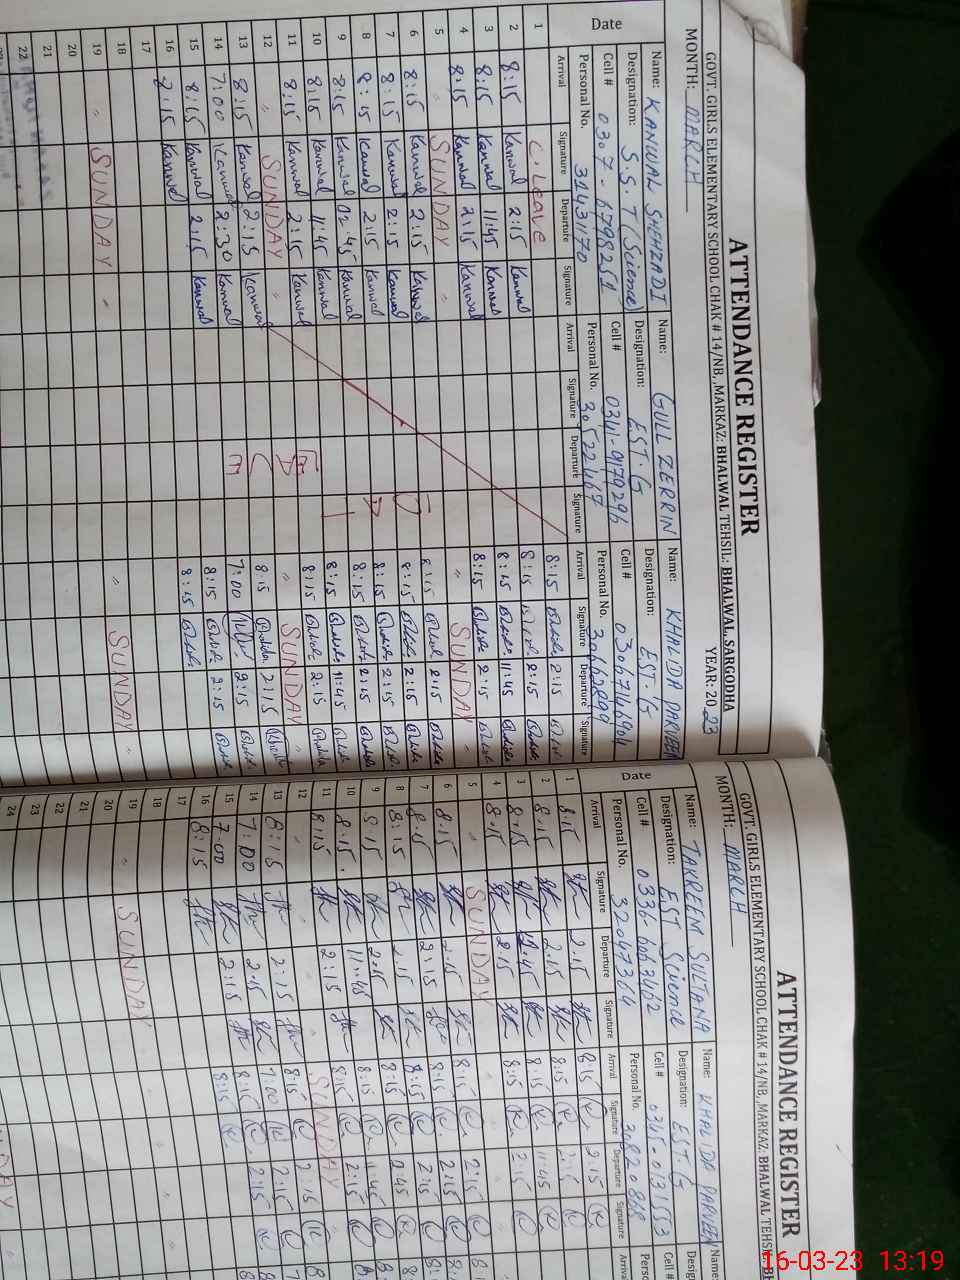 ATTENDANCE REGISTER
GOVT. GIRLS ELEMENTARY SCHOOL CHAK # 14/NB, MARKAZ: BHALWAL TEHSIL: BHALWAL, SARGODHA
MONTH: MARCH YEAR: 2023
Name: KANWAL SHEHZADI Name: GULL ZERRIN Name: KHALIDA PARVEEN
Designation: S.S.T (Science) Designation: EST.G Designation: EST.G
Cell # 0307-6798251 Cell # 0341-9179296 Cell # 03067146964
Personal No. 31431170 Personal No. 30522467 Personal No. 30662899
Date Arrival Signature Departure Signature Arrival Signature Departure Signature Arrival Signature Departure Signature
1 C. Leave 8:15 2:15
2 8:15 Kanwal 2:15 Kanwal 8:15 2:15
3 8:15 Kanwal 11:45 Kanwal 8:15 11:45
4 8:15 Kanwal 2:15 Kanwal 8:15 2:15
5 SUNDAY " SUNDAY
6 8:15 Kanwal 2:15 Kanwal 8:15 2:15
7 8:15 Kanwal 2:15 Kanwal 8:15 2:15
8 8:15 Kanwal 2:15 Kanwal 8:15 2:15
9 8:15 Kanwal 02:45 Kanwal 8:15 2:15
10 8:15 Kanwal 11:45 Kanwal 8:15 11:45
11 8:15 Kanwal 2:15 Kanwal 8:15 2:15
12 " SUNDAY " SUNDAY
13 8:15 Kanwal 2:15 Kanwal 8:15 2:15
14 7:00 Kanwal 2:30 Kanwal 7:00 2:15
15 8:15 Kanwal 2:15 Kanwal 8:15 2:15
16 8:15 Kanwal 8:15
17
18
19 " SUNDAY " SUNDAY "
20
21
22
ATTENDANCE REGISTER
GOVT. GIRLS ELEMENTARY SCHOOL CHAK # 14/NB, MARKAZ: BHALWAL TEHSIL: BH
MONTH: MARCH
Name: TAKREEM SULTANA Name: KHALIDA PARVEEN Name:
Designation: EST Science Designation: EST.G Desig
Cell # 0336 6063462 Cell # 0345-0131553 Cell #
Personal No. 32047364 Personal No. 30820868 Perso
Date Arrival Signature Departure Signature Arrival Signature Departure Signature Arriva
1 8.15 2.15 8:15 2:15
2 8.15 2.15 8:15 2:15
3 8:15 12.45 8:15 11:45
4 8.15 2:15 8:15 2:15
5 " SUNDAY
6 8.15 2.15 8:15 2:15
7 8.15 2:15 8:15 2:15
8 8:15 2.15 8:15 2:15
9 8.15 2.15 8:15 2:45
10 8.15 11:45 8:15 11:45
11 8:15 2:15 8:15 2:15
12 SUNDAY
13 8:15 2:15 8:15 2:15
14 7:00 2.15 7:00 2:15
15 7:00 2:15 8:15 2:15
16 8:15 8:15
17
18
19 " SUNDAY
20
21
22
23
24
16-03-23 13:19